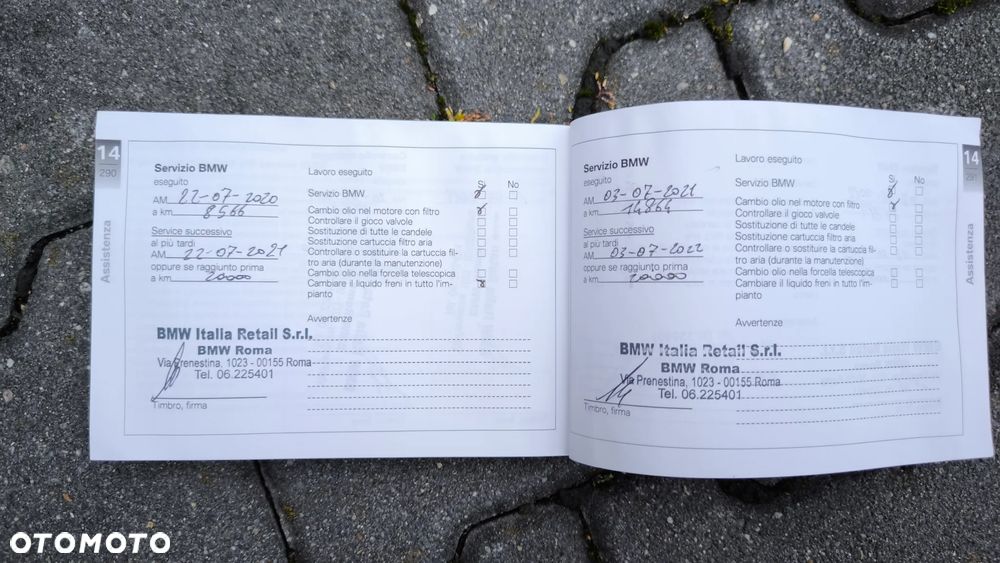 14
290
Assistenza
Servizio BMW
eseguito
AM 22-07-2020
a km 8566
Service successivo
al più tardi
AM 22-07-2021
oppure se raggiunto prima
a km 20000
BMW Italia Retail S.r.l.
BMW Roma
Via Prenestina, 1023 - 00155 Roma
Tel. 06.225401
Timbro, firma
Lavoro eseguito
Sì No
Servizio BMW
Cambio olio nel motore con filtro
Controllare il gioco valvole
Sostituzione di tutte le candele
Sostituzione cartuccia filtro aria
Controllare o sostituire la cartuccia fil-
tro aria (durante la manutenzione)
Cambio olio nella forcella telescopica
Cambiare il liquido freni in tutto l'im-
pianto
Avvertenze
Servizio BMW
eseguito
AM 03-07-2021
a km 14864
Service successivo
al più tardi
AM 03-07-2022
oppure se raggiunto prima
a km 20000
BMW Italia Retail S.r.l.
BMW Roma
Via Prenestina, 1023 - 00155 Roma
Tel. 06.225401
Timbro, firma
Lavoro eseguito
Sì No
Servizio BMW
Cambio olio nel motore con filtro
Controllare il gioco valvole
Sostituzione di tutte le candele
Sostituzione cartuccia filtro aria
Controllare o sostituire la cartuccia fil-
tro aria (durante la manutenzione)
Cambio olio nella forcella telescopica
Cambiare il liquido freni in tutto l'im-
pianto
Avvertenze
14
291
Assistenza
OTOMOTO